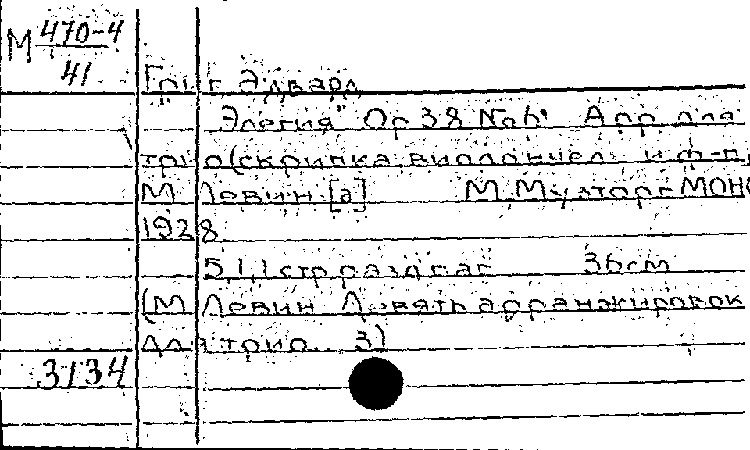 М 470-4
41
Григ Эдвард
"Элегия" Op 38 №6. Арр. для
трио (скрипка, виолончель и ф-п.)
М Левин[а] М, Музторг МОНО
1928
5,1,1 стр. разд. паг. 36 cm
(М Левин Девять аранжировок
для трио. 3)
3134